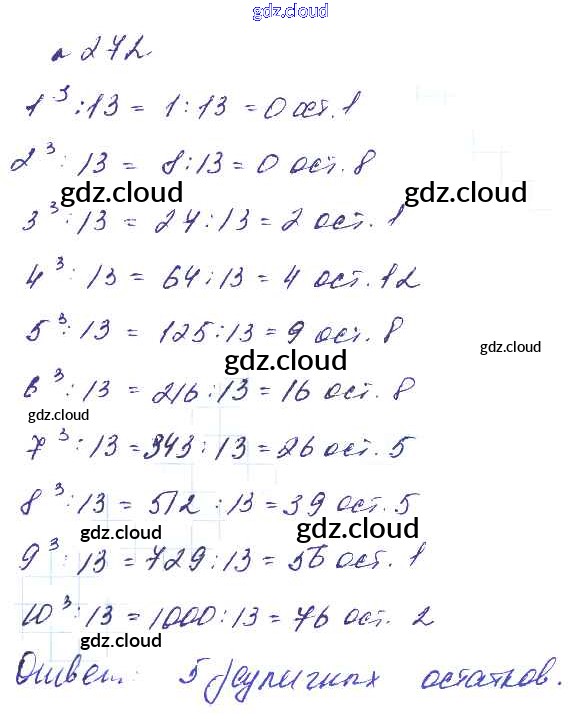 gdz.cloud
n 272
1³ : 13 = 1 : 13 = 0 ост. 1
2³ : 13 = 8 : 13 = 0 ост. 8
gdz.cloud gdz.cloud
3³ : 13 = 27 : 13 = 2 ост. 1
4³ : 13 = 64 : 13 = 4 ост. 12
5³ : 13 = 125 : 13 = 9 ост. 8
gdz.cloud gdz.cloud
6³ : 13 = 216 : 13 = 16 ост. 8
gdz.cloud
7³ : 13 = 343 : 13 = 26 ост. 5
8³ : 13 = 512 : 13 = 39 ост. 5
gdz.cloud gdz.cloud
9³ : 13 = 729 : 13 = 56 ост. 1
10³ : 13 = 1000 : 13 = 76 ост. 2
gdz.cloud
Ответ: 5 остатков.